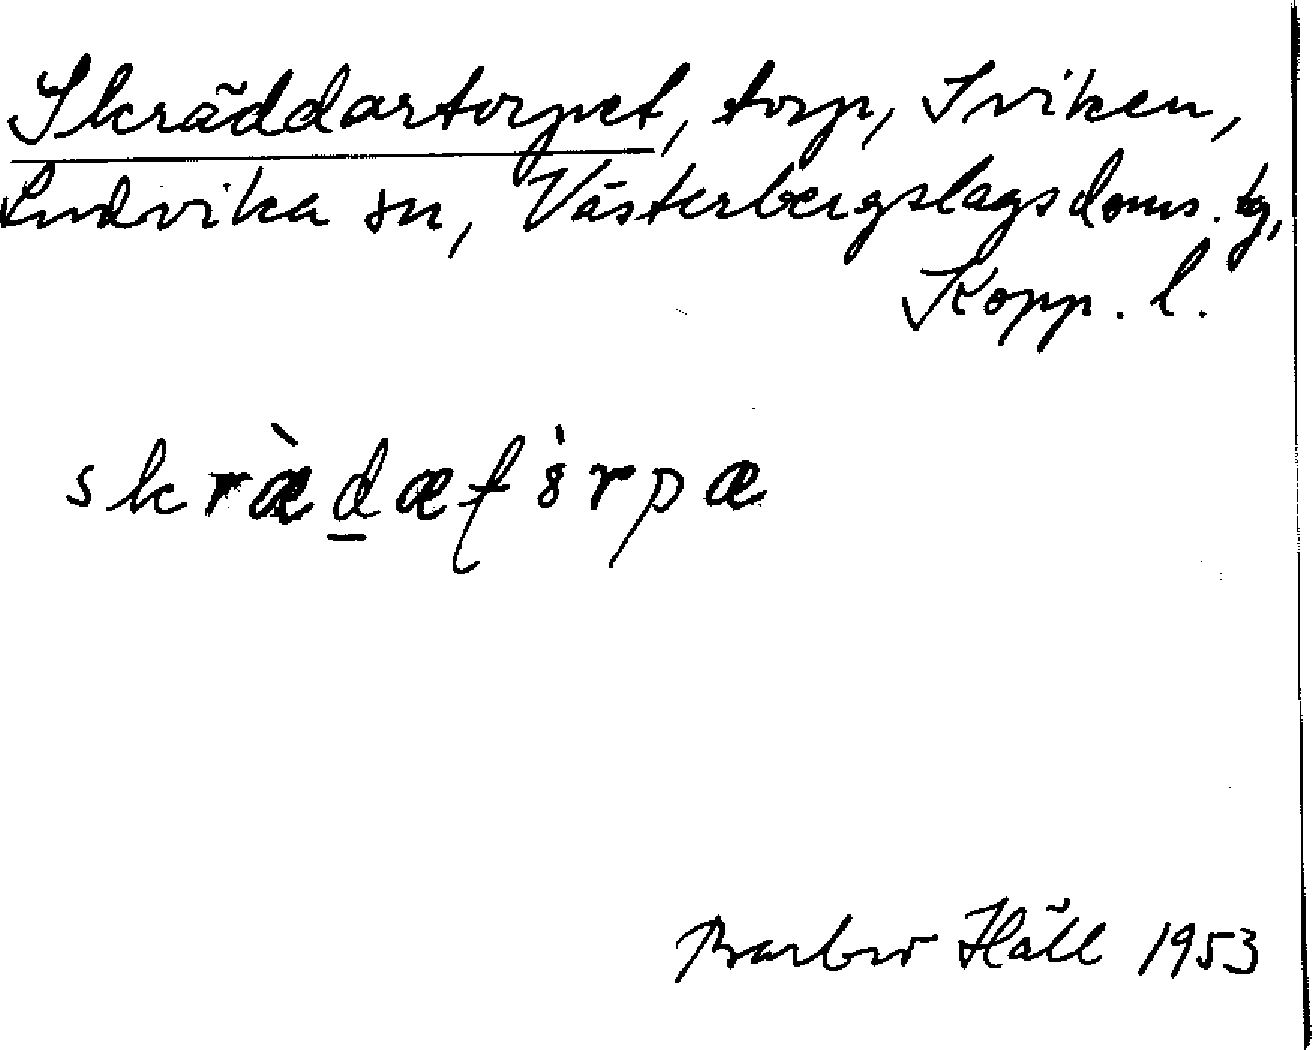 Skräddartorpet, torp, Sviken,
Ludvika sn, Västerbergslags doms. tg,
Kopp. l.
skræ̀d̠æʈȯrpæ
Barbro Häll 1953